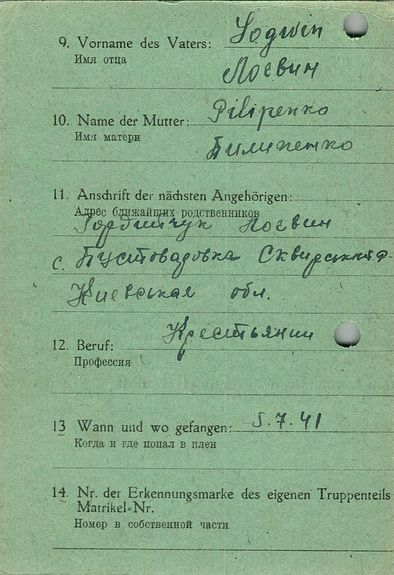 9. Vorname des Vaters: Logwin
Имя отца
Логвин
10. Name der Mutter: Pilipenko
Имя матери
Билипенко
11. Anschrift der nächsten Angehörigen:
Адрес ближайших родственников
Горбинчук Логвин
с. Бустовадовка Сквирский р-
Киевская обл.
12. Beruf: Крестьянин
Профессия
13 Wann und wo gefangen: 5.7.41
Когда и где попал в плен
14. Nr. der Erkennungsmarke des eigenen Truppenteils
Matrikel-Nr.
Номер в собственной части